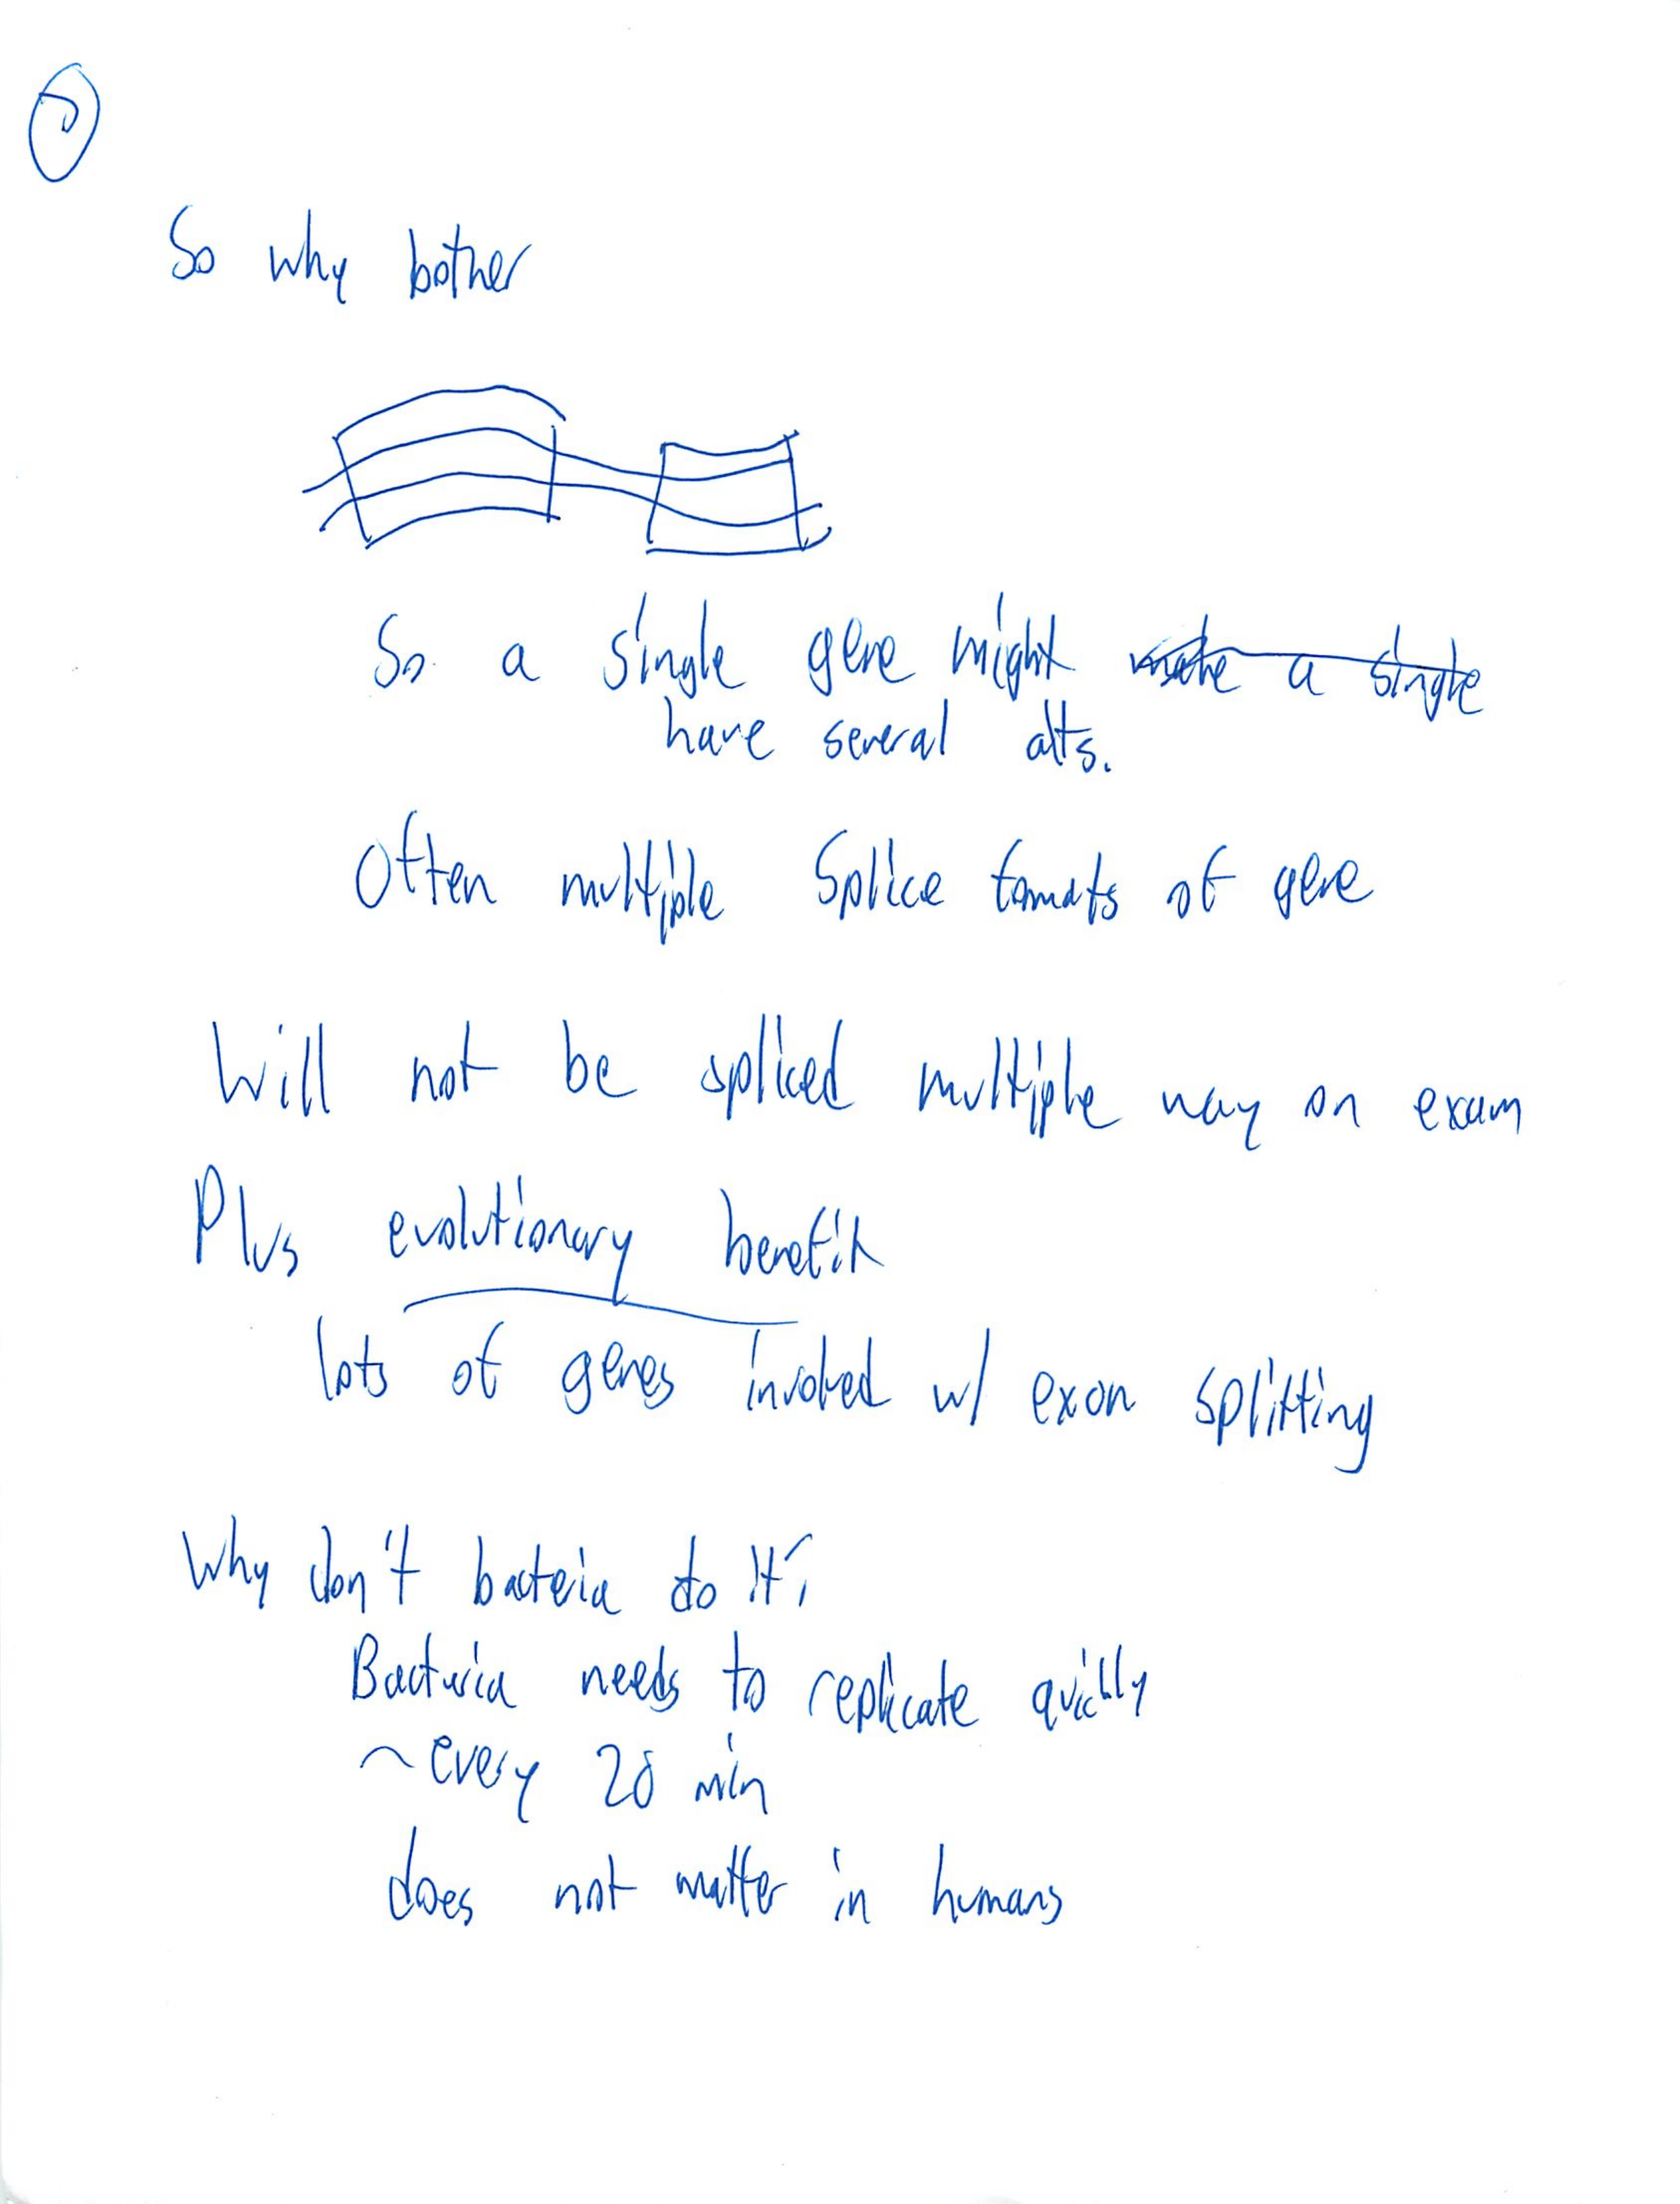 So why bother
So a single gene might make a single
have several alts.
Often multiple Splice formats of gene
Will not be spliced multiple way on exam
Plus evolutionary benefit
lots of genes involved w/ exon splitting
Why don't bacteria do it?
Bacteria needs to replicate quickly
~every 20 min
does not matter in humans